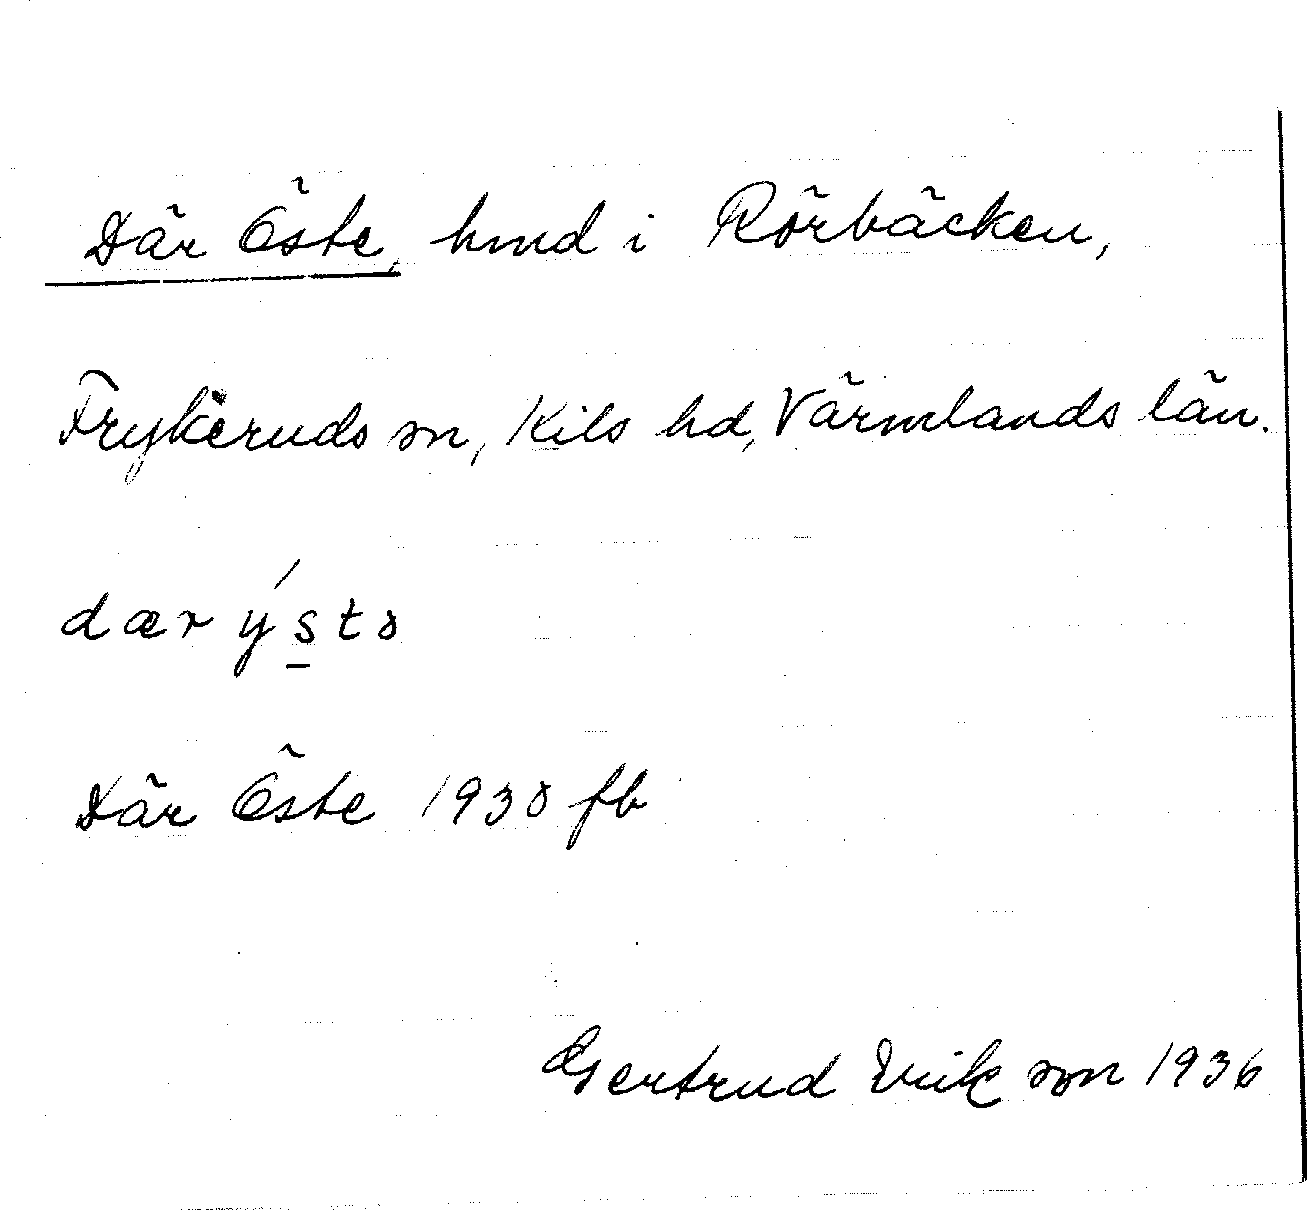 Där Öste, hmd i Rörbäcken,
Frykeruds sn, Kils hd, Värmlands län.
dær ýs̲tə
Där Öste 1930 fb
Gertrud Erikson 1936